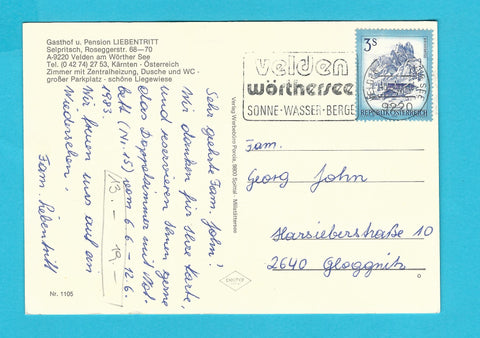 Gasthof u. Pension LIEBENTRITT
Selpritsch, Roseggerstr. 68—70
A-9220 Velden am Wörther See
Tel. (0 42 74) 27 53, Kärnten · Österreich
Zimmer mit Zentralheizung, Dusche und WC -
großer Parkplatz - schöne Liegewiese
Sehr geehrte Fam. John!
Wir danken für Ihre Karte,
und reservieren Ihnen gerne
das Doppelzimmer mit Rot-
bett (Nr. 15) vom 6.6. - 12.6.
1983.
13. - 19. -
Wir freuen uns auf ein
Wiedersehen.
Fam. Liebentritt
Nr. 1105
Verlag Werbebüro Porcia, 9800 Spittal - Millstättersee
velden
wörthersee
SONNE · WASSER · BERGE
3S
REPUBLIK ÖSTERREICH
9220
Fam.
Georg John
Harsieberstraße 10
2640 Gloggnitz